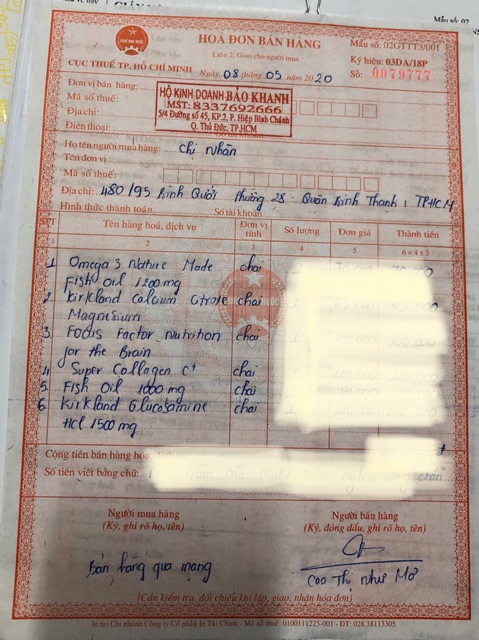 HOÁ ĐƠN BÁN HÀNG
Mẫu số: 02GTTT3/001
Liên 2: Giao cho người mua
Ký hiệu: 03DA/18P
CỤC THUẾ TP. HỒ CHÍ MINH
Ngày 08 tháng 05 năm 2020
Số: 0079777
Đơn vị bán hàng:
HỘ KINH DOANH BẢO KHANH
Mã số thuế:
MST: 8337692666
Địa chỉ:
5/4 Đường số 45, KP.2, P. Hiệp Bình Chánh
Điện thoại:
Q. Thủ Đức, TP.HCM
Họ tên người mua hàng: Chị Nhàn
Tên đơn vị:
Mã số thuế:
Địa chỉ: 480/95 Bình Quới Phường 28 - Quận Bình Thạnh, TPHCM
Hình thức thanh toán: Số tài khoản
STT Tên hàng hoá, dịch vụ Đơn vị tính Số lượng Đơn giá Thành tiền
1 2 3 4 5 6 = 4 x 5
1 Omega 3 Nature Made chai
Fish Oil 1200 mg
2 Kirkland Calcium Citrate chai
Magnesium
3 Focus Factor nutrition chai
for the Brain
4 Super Collagen C+ chai
5 Fish Oil 1000 mg chai
6 Kirkland Glucosamine chai
HCl 1500 mg
Cộng tiền bán hàng hoá, dịch
Số tiền viết bằng chữ:
Người mua hàng
Người bán hàng
(Ký, ghi rõ họ, tên)
(Ký, đóng dấu, ghi rõ họ, tên)
Bán hàng qua mạng
Cao Thị Như Mơ
(Cần kiểm tra, đối chiếu khi lập, giao, nhận hóa đơn)
In tại Chi nhánh Công ty Cổ phần In Tài Chính - Mã số thuế: 0100111225-001 - ĐT: 028.38113305